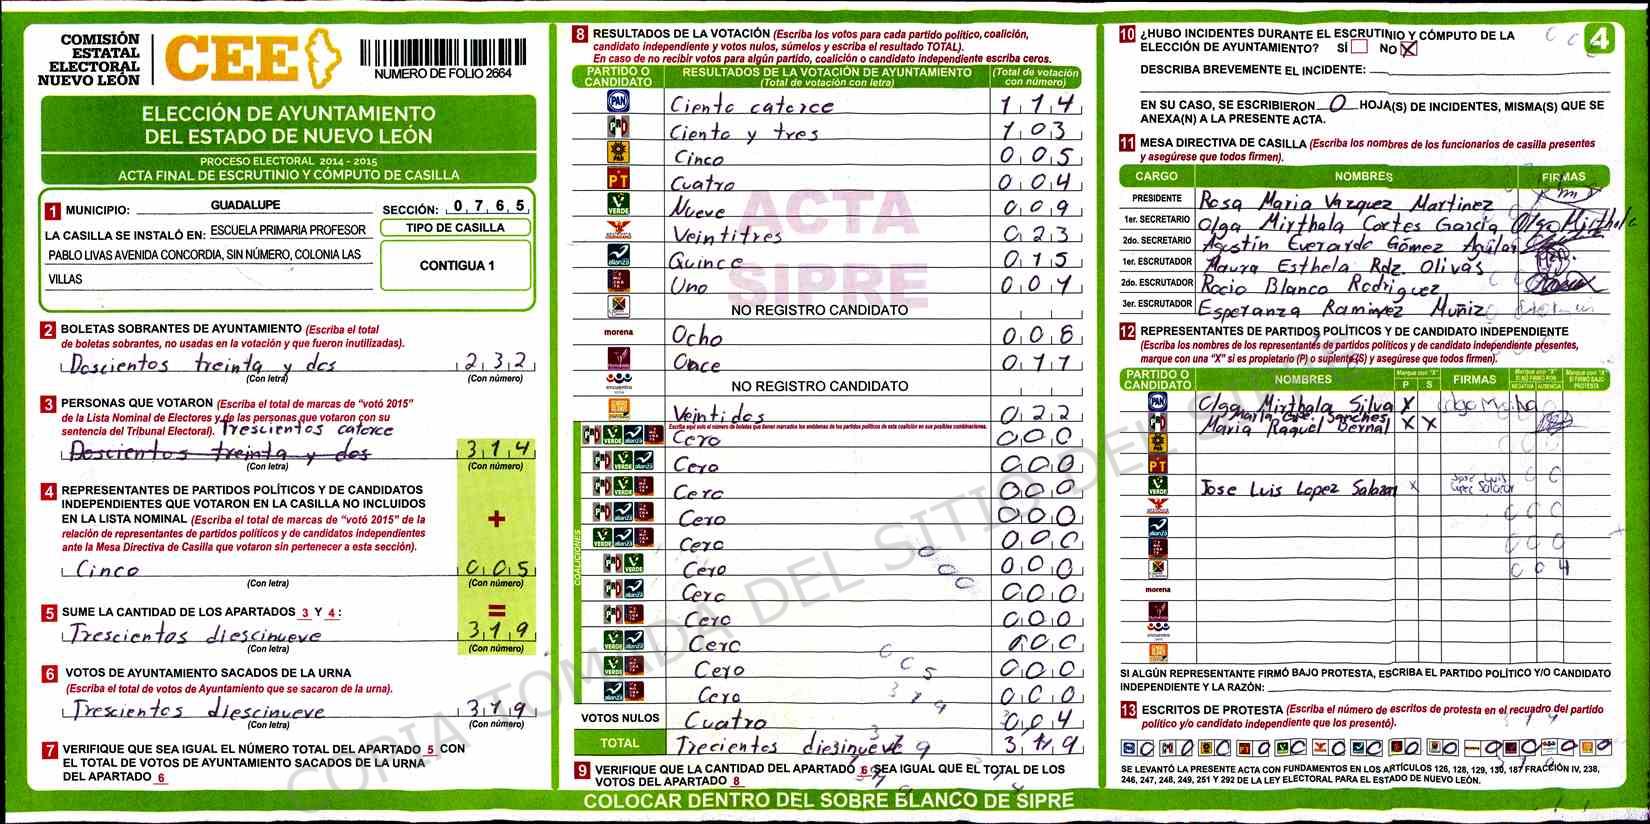 COMISIÓN
ESTATAL
ELECTORAL
NUEVO LEÓN
CEE
NUMERO DE FOLIO 2664
ELECCIÓN DE AYUNTAMIENTO
DEL ESTADO DE NUEVO LEÓN
PROCESO ELECTORAL 2014 - 2015
ACTA FINAL DE ESCRUTINIO Y CÓMPUTO DE CASILLA
1 MUNICIPIO: GUADALUPE SECCIÓN: 0,7,6,5
LA CASILLA SE INSTALÓ EN: ESCUELA PRIMARIA PROFESOR
PABLO LIVAS AVENIDA CONCORDIA, SIN NÚMERO, COLONIA LAS
VILLAS
TIPO DE CASILLA
CONTIGUA 1
2 BOLETAS SOBRANTES DE AYUNTAMIENTO (Escriba el total
de boletas sobrantes, no usadas en la votación y que fueron inutilizadas).
Doscientos treinta y dos 2,3,2
(Con letra) (Con número)
3 PERSONAS QUE VOTARON (Escriba el total de marcas de “votó 2015”
de la Lista Nominal de Electores y de las personas que votaron con su
sentencia del Tribunal Electoral). Trescientos catorce
Doscientos treinta y dos 3,1,4
(Con letra) (Con número)
4 REPRESENTANTES DE PARTIDOS POLÍTICOS Y DE CANDIDATOS
INDEPENDIENTES QUE VOTARON EN LA CASILLA NO INCLUIDOS
EN LA LISTA NOMINAL (Escriba el total de marcas de “votó 2015” de la
relación de representantes de partidos políticos y de candidatos independientes
ante la Mesa Directiva de Casilla que votaron sin pertenecer a esta sección).
+
Cinco 0,0,5
(Con letra) (Con número)
5 SUME LA CANTIDAD DE LOS APARTADOS 3 Y 4 : =
Trescientos diescinueve 3,1,9
(Con letra) (Con número)
6 VOTOS DE AYUNTAMIENTO SACADOS DE LA URNA
(Escriba el total de votos de Ayuntamiento que se sacaron de la urna).
Trescientos diescinueve 3,1,9
(Con letra) (Con número)
7 VERIFIQUE QUE SEA IGUAL EL NÚMERO TOTAL DEL APARTADO 5 CON
EL TOTAL DE VOTOS DE AYUNTAMIENTO SACADOS DE LA URNA
DEL APARTADO 6
8 RESULTADOS DE LA VOTACIÓN (Escriba los votos para cada partido político, coalición,
candidato independiente y votos nulos, súmelos y escriba el resultado TOTAL).
En caso de no recibir votos para algún partido, coalición o candidato independiente escriba ceros.
PARTIDO O CANDIDATO RESULTADOS DE LA VOTACIÓN DE AYUNTAMIENTO (Total de votación con letra) (Total de votación con número)
PAN Ciento catorce 1,1,4
PRI Ciento y tres 1,0,3
PRD Cinco 0,0,5
PT Cuatro 0,0,4
VERDE Nueve 0,0,9
Veintitres 0,2,3
alianza Quince 0,1,5
Uno 0,0,1
NO REGISTRO CANDIDATO
morena Ocho 0,0,8
Once 0,1,1
encuentro NO REGISTRO CANDIDATO
Veintidos 0,2,2
Escriba aquí solo el número de boletas que tienen marcados los emblemas de los partidos políticos de esta coalición en sus posibles combinaciones.
COALICIONES
Cero 0,0,0
Cero 0,0,0
Cero 0,0,0
Cero 0,0,0
Cero 0,0,0
Cero 0,0,0
Cero 0,0,0
Cero 0,0,0
Cero 0,0,0
Cero 0,0,0
Cero 0,0,0
VOTOS NULOS Cuatro 0,0,4
TOTAL Trecientos diesinueve 3,1,9
9 VERIFIQUE QUE LA CANTIDAD DEL APARTADO 6 SEA IGUAL QUE EL TOTAL DE LOS
VOTOS DEL APARTADO 8
ACTA
SIPRE
COPIA TOMADA DEL SITIO DEL SIPRE
COLOCAR DENTRO DEL SOBRE BLANCO DE SIPRE
4
10 ¿HUBO INCIDENTES DURANTE EL ESCRUTINIO Y CÓMPUTO DE LA
ELECCIÓN DE AYUNTAMIENTO? SÍ NO X
DESCRIBA BREVEMENTE EL INCIDENTE:
EN SU CASO, SE ESCRIBIERON 0 HOJA(S) DE INCIDENTES, MISMA(S) QUE SE
ANEXA(N) A LA PRESENTE ACTA.
11 MESA DIRECTIVA DE CASILLA (Escriba los nombres de los funcionarios de casilla presentes
y asegúrese que todos firmen).
CARGO NOMBRES FIRMAS
PRESIDENTE Rosa Maria Vazquez Martinez
1er. SECRETARIO Olga Mirthala Cortes Garcia Olga Mirthala
2do. SECRETARIO Agustin Everardo Gómez Aguilar
1er. ESCRUTADOR Maura Esthela Rdz. Olivas
2do. ESCRUTADOR Rocio Blanco Rodriguez
3er. ESCRUTADOR Esperanza Ramirez Muñiz
12 REPRESENTANTES DE PARTIDOS POLÍTICOS Y DE CANDIDATO INDEPENDIENTE
(Escriba los nombres de los representantes de partidos políticos y de candidato independiente presentes,
marque con una “X” si es propietario (P) o suplente (S) y asegúrese que todos firmen).
PARTIDO O CANDIDATO NOMBRES Marque con “X” P S FIRMAS Marque con “X” SI NO FIRMÓ POR NEGATIVA AUSENCIA Marque con “X” SI FIRMÓ BAJO PROTESTA
PAN Olga Mirthala Silva X
Maria Gpe. Sanches
Maria Raquel Bernal X X
PT
VERDE Jose Luis Lopez Salazar X Jose Luis Lopez Salazar
morena
SI ALGÚN REPRESENTANTE FIRMÓ BAJO PROTESTA, ESCRIBA EL PARTIDO POLÍTICO Y/O CANDIDATO
INDEPENDIENTE Y LA RAZÓN:
13 ESCRITOS DE PROTESTA (Escriba el número de escritos de protesta en el recuadro del partido
político y/o candidato independiente que los presentó).
SE LEVANTÓ LA PRESENTE ACTA CON FUNDAMENTOS EN LOS ARTÍCULOS 126, 128, 129, 130, 187 FRACCIÓN IV, 238,
246, 247, 248, 249, 251 Y 292 DE LA LEY ELECTORAL PARA EL ESTADO DE NUEVO LEÓN.